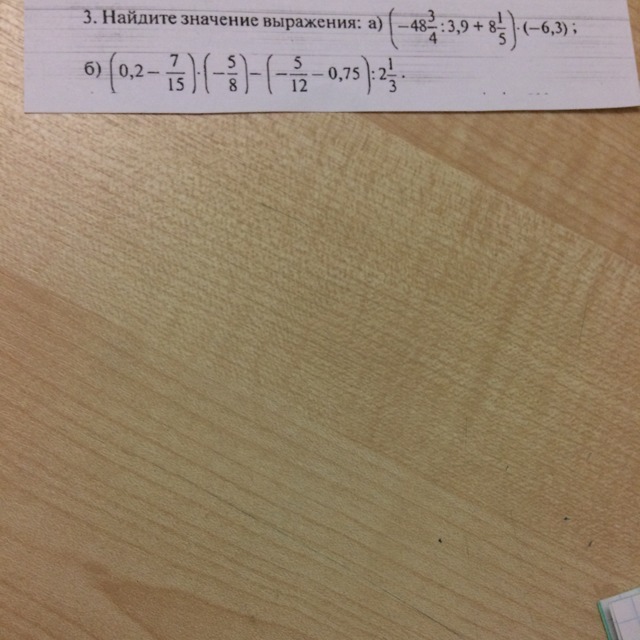 3. Найдите значение выражения: а) (−48 3/4 : 3,9 + 8 1/5) · (−6,3) ;
б) (0,2 − 7/15) · (−5/8) − (−5/12 − 0,75) : 2 1/3 .